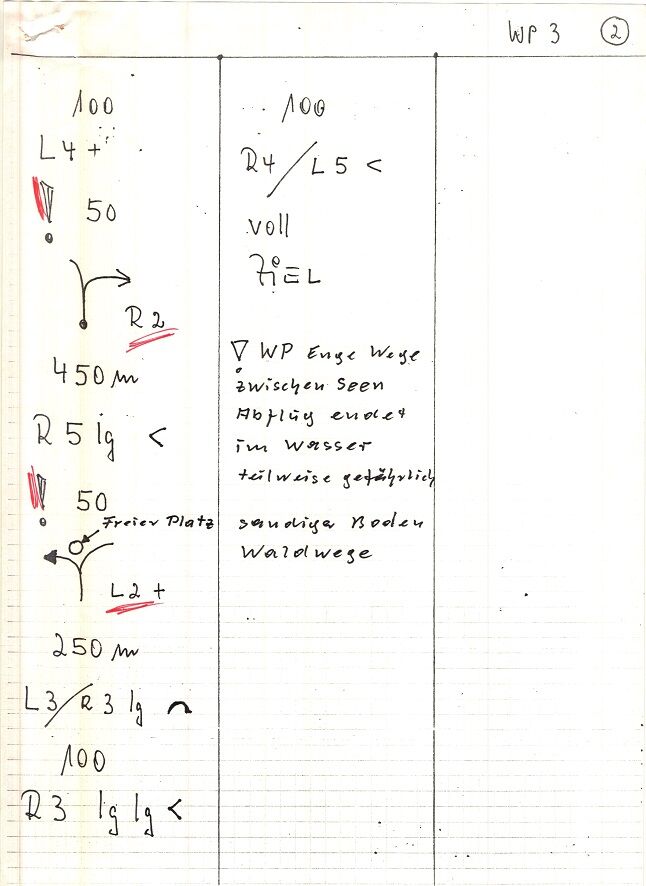 WP 3 2
100
L4 +
! 50
R2
450 m
R 5 lg <
! 50
Freier Platz
L2 +
250 m
L3/R3 lg
100
R3 lg lg <
100
R4/L5 <
voll
ZiEL
! WP Enge Wege
zwischen Seen
Abflug endet
im Wasser
teilweise gefährlich
sandiger Boden
Waldwege